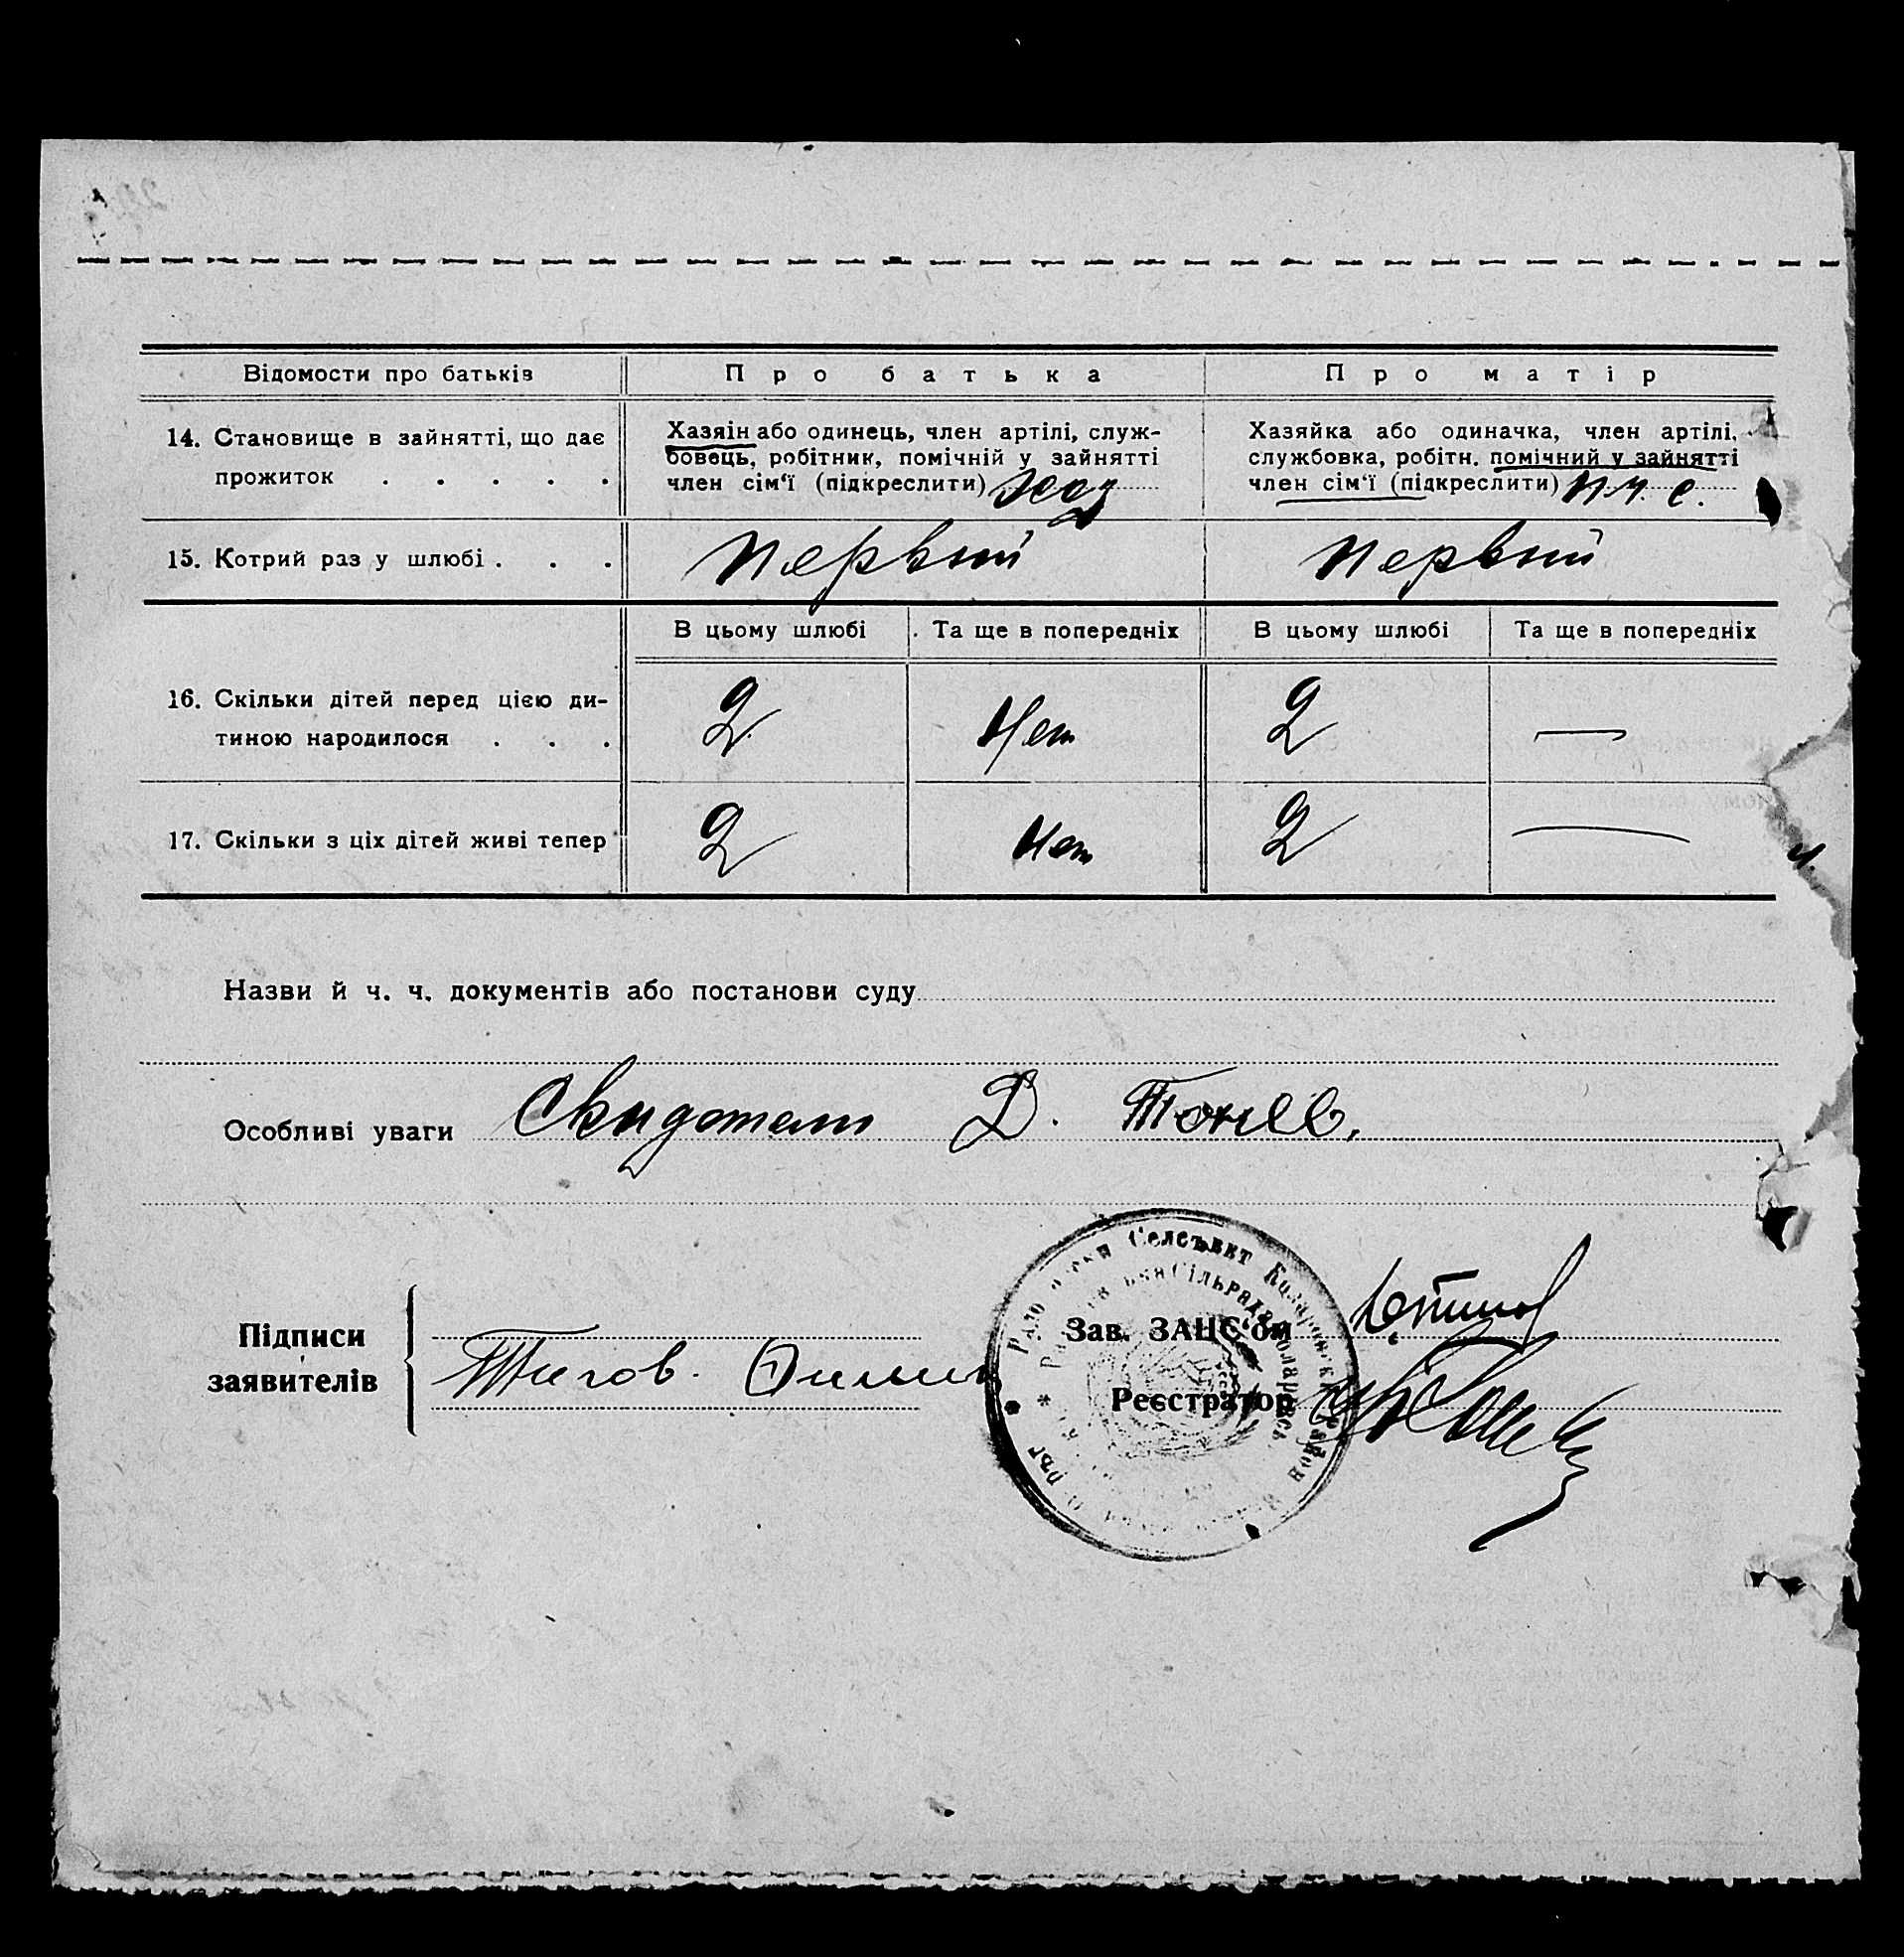 Відомости про батьків
Про батька
Про матір
14. Становище в зайнятті, що дає
прожиток . . . . .
Хазяін або одинець, член артілі, служ-
бовець, робітник, помічній у зайнятті
член сім‘ї (підкреслити) хоз
Хазяйка або одиначка, член артілі,
службовка, робітн. помічний у зайнятті
член сім‘ї (підкреслити) п. ч. с.
15. Котрий раз у шлюбі . . .
первый
первый
В цьому шлюбі
Та ще в попередніх
В цьому шлюбі
Та ще в попередніх
16. Скільки дітей перед цією ди-
тиною народилося . . .
2
Нет
2
—
17. Скільки з ціх дітей живі тепер
2
Нет
2
—
Назви й ч. ч. документів або постанови суду
Особливі уваги
Д. Тонев.
Підписи
заявителів
Зав. ЗАЦС‘ом
Реєстратор
Селсъвит
Сільрада